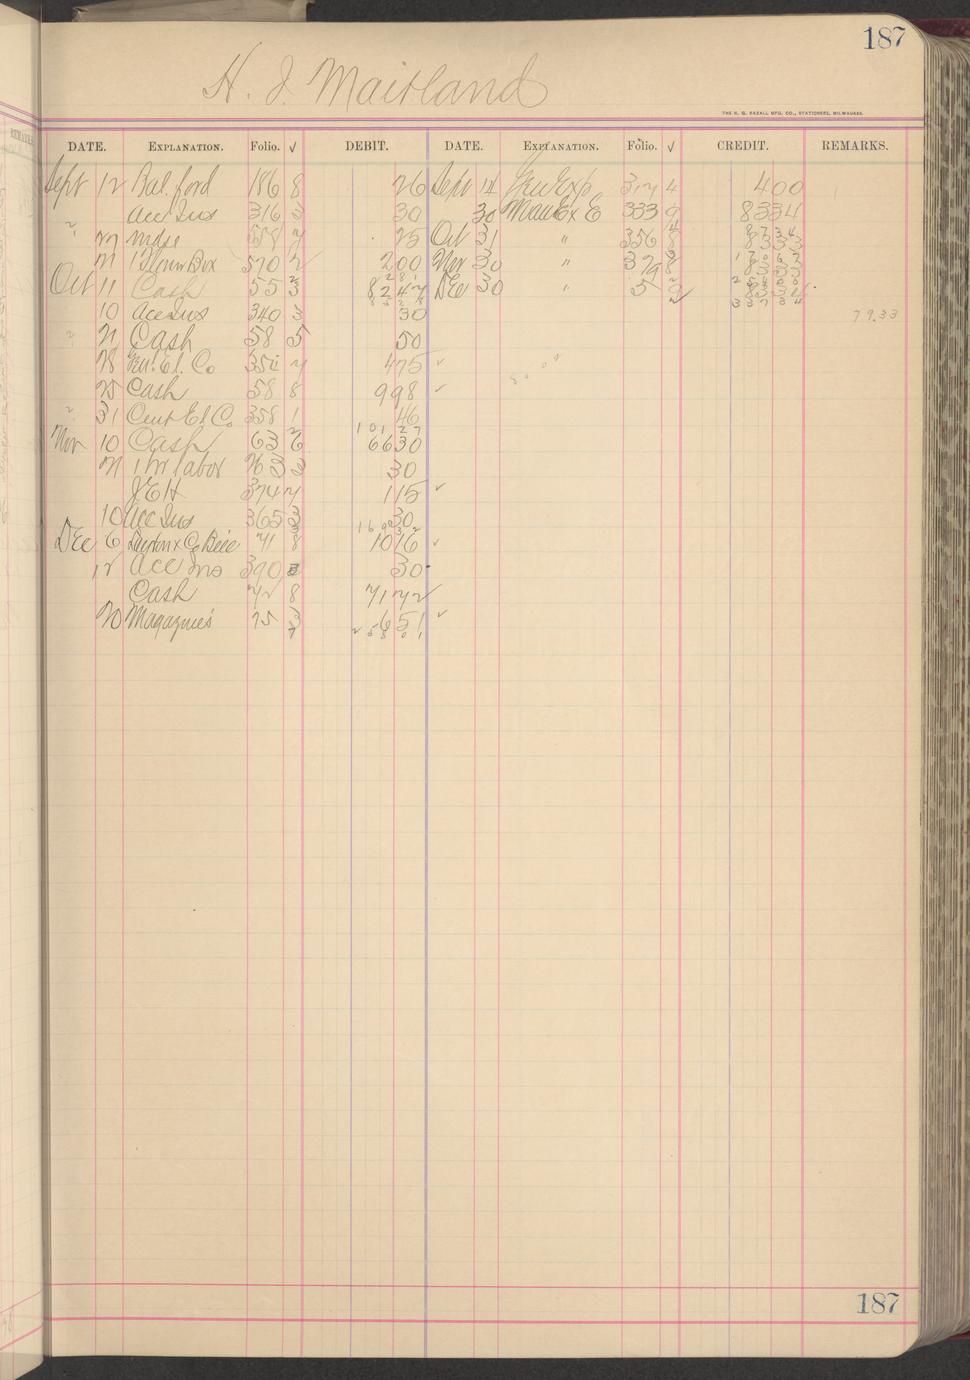 187
H. J. Maitland
THE H. G. RAZALL MFG. CO., STATIONERS, MILWAUKEE.
DATE. EXPLANATION. Folio. √ DEBIT. DATE. EXPLANATION. Folio. √ CREDIT. REMARKS.
Sept 12 Bal. ford 186 8 26 Sept 14 Gen Exp 317 4 4 00
Acc Ins 316 3 30 30 Man Ex E 333 9 83 34
27 mdse 558 7 25 Oct 31 " 356 8 83 33
87 34
21 Box 570 2 2 00 Nov 30 " 379 8 83 33
170 67
2 81
Oct 11 Cash 55 3 82 47 Dec 30 " 5 2 83 34
85 28
337 34
10 Acc Ins 340 3 30
79.33
21 Cash 58 5 50
Gen. El. Co 7 4 75 ✓
25 Cash 58 8 9 98 ✓
31 Cent El Co. 358 1 46
101 27
Nov 10 Cash 63 6 66 30
21 1 hr labor 3 30
J E H 374 7 1 15 ✓
10 Acc Ins 365 3 30
Dec 6 71 8 10 16 ✓
12 Acc Ins 390 3 30
Cash 72 8 71 72
20 Magazines 75 3 6 51 ✓
7 258 01
187